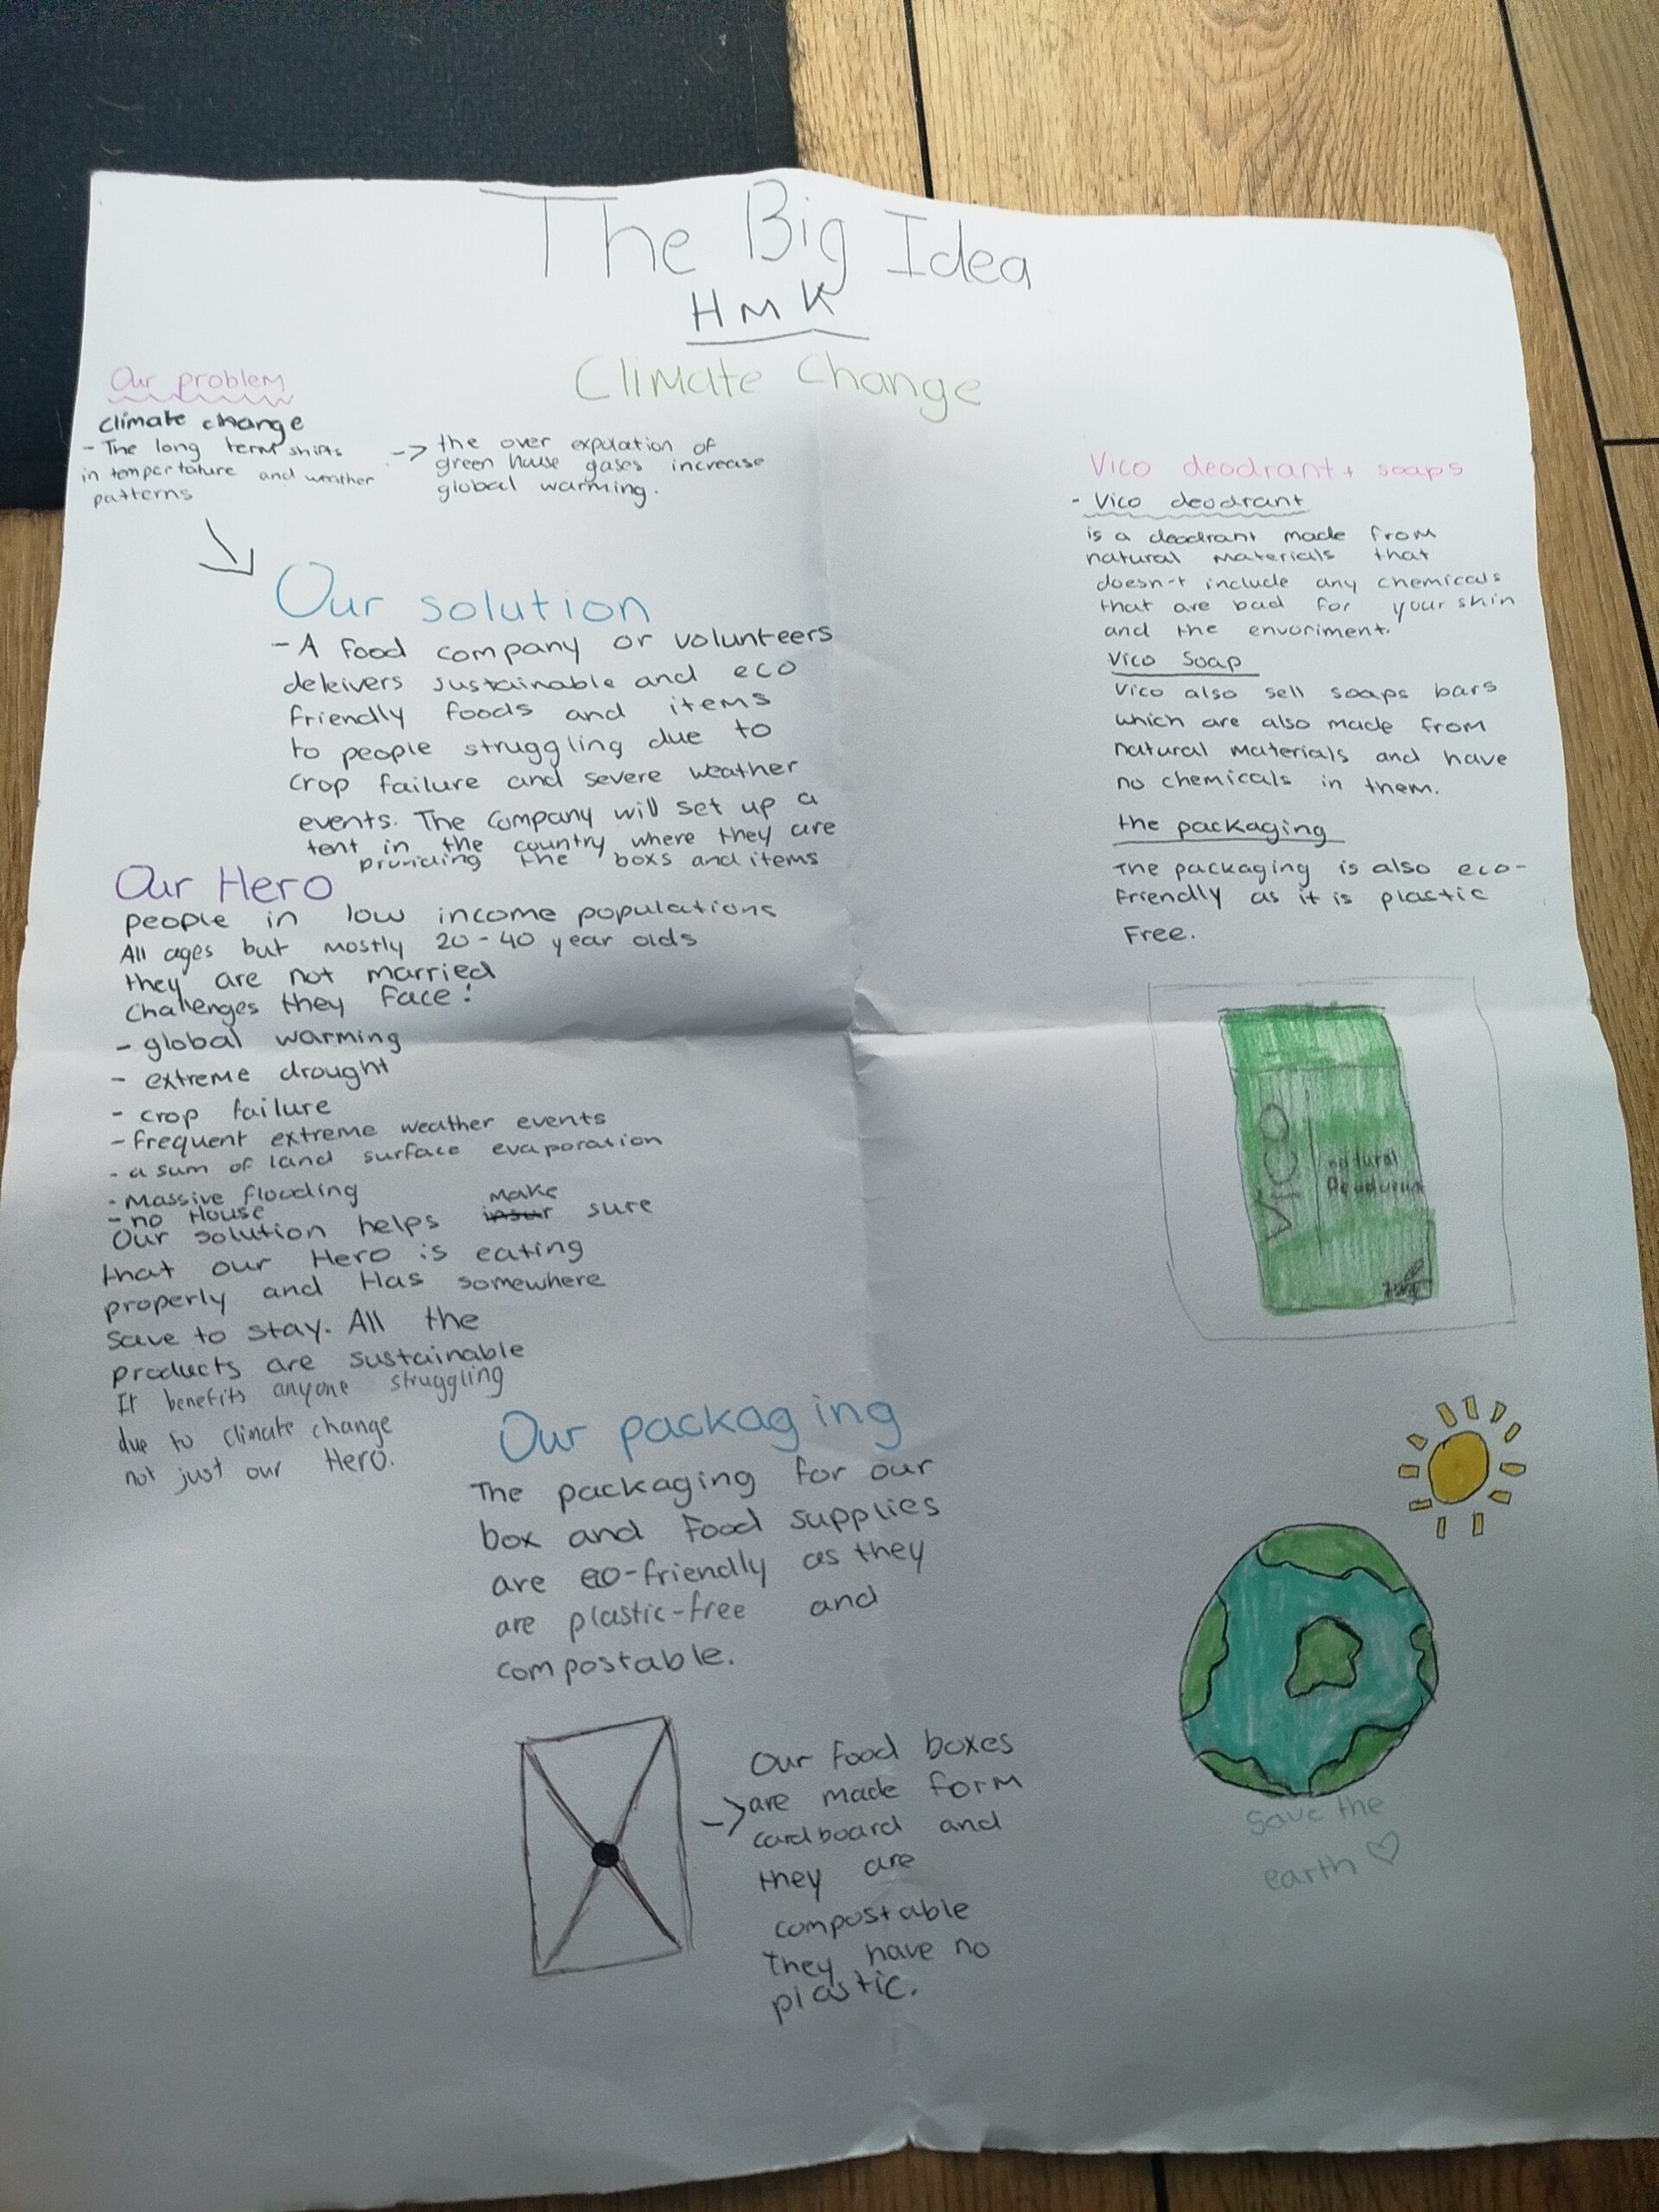 The Big Idea
HMK
Climate Change
Our problem
climate change
- The long term shifts
in tempertature and weather
patterns
-> the over expulation of
green house gases increase
global warming.
Our solution
- A food company or volunteers
deleivers sustainable and eco
friendly foods and items
to people struggling due to
crop failure and severe weather
events. The company will set up a
tent in the country where they are
providing the boxs and items
Our Hero
people in low income populations
All ages but mostly 20-40 year olds
they are not married
Challenges they face:
- global warming
- extreme drought
- crop failure
- frequent extreme weather events
- a sum of land surface evaporation
- Massive flooding
- no House
Our solution helps insur make sure
that our Hero is eating
properly and Has somewhere
save to stay. All the
products are sustainable
It benefits anyone struggling
due to climate change
not just our Hero.
Our packaging
The packaging for our
box and food supplies
are eco-friendly as they
are plastic-free and
compostable.
-> Our food boxes
are made form
cardboard and
they are
compostable
they have no
plastic.
Vico deodrant + soaps
- Vico deodrant
is a deodrant made from
natural materials that
doesn't include any chemicals
that are bad for your skin
and the envoriment.
Vico Soap
Vico also sell soaps bars
which are also made from
natural materials and have
no chemicals in them.
the packaging
The packaging is also eco-
friendly as it is plastic
free.
VICO
natural
save the
earth ♡